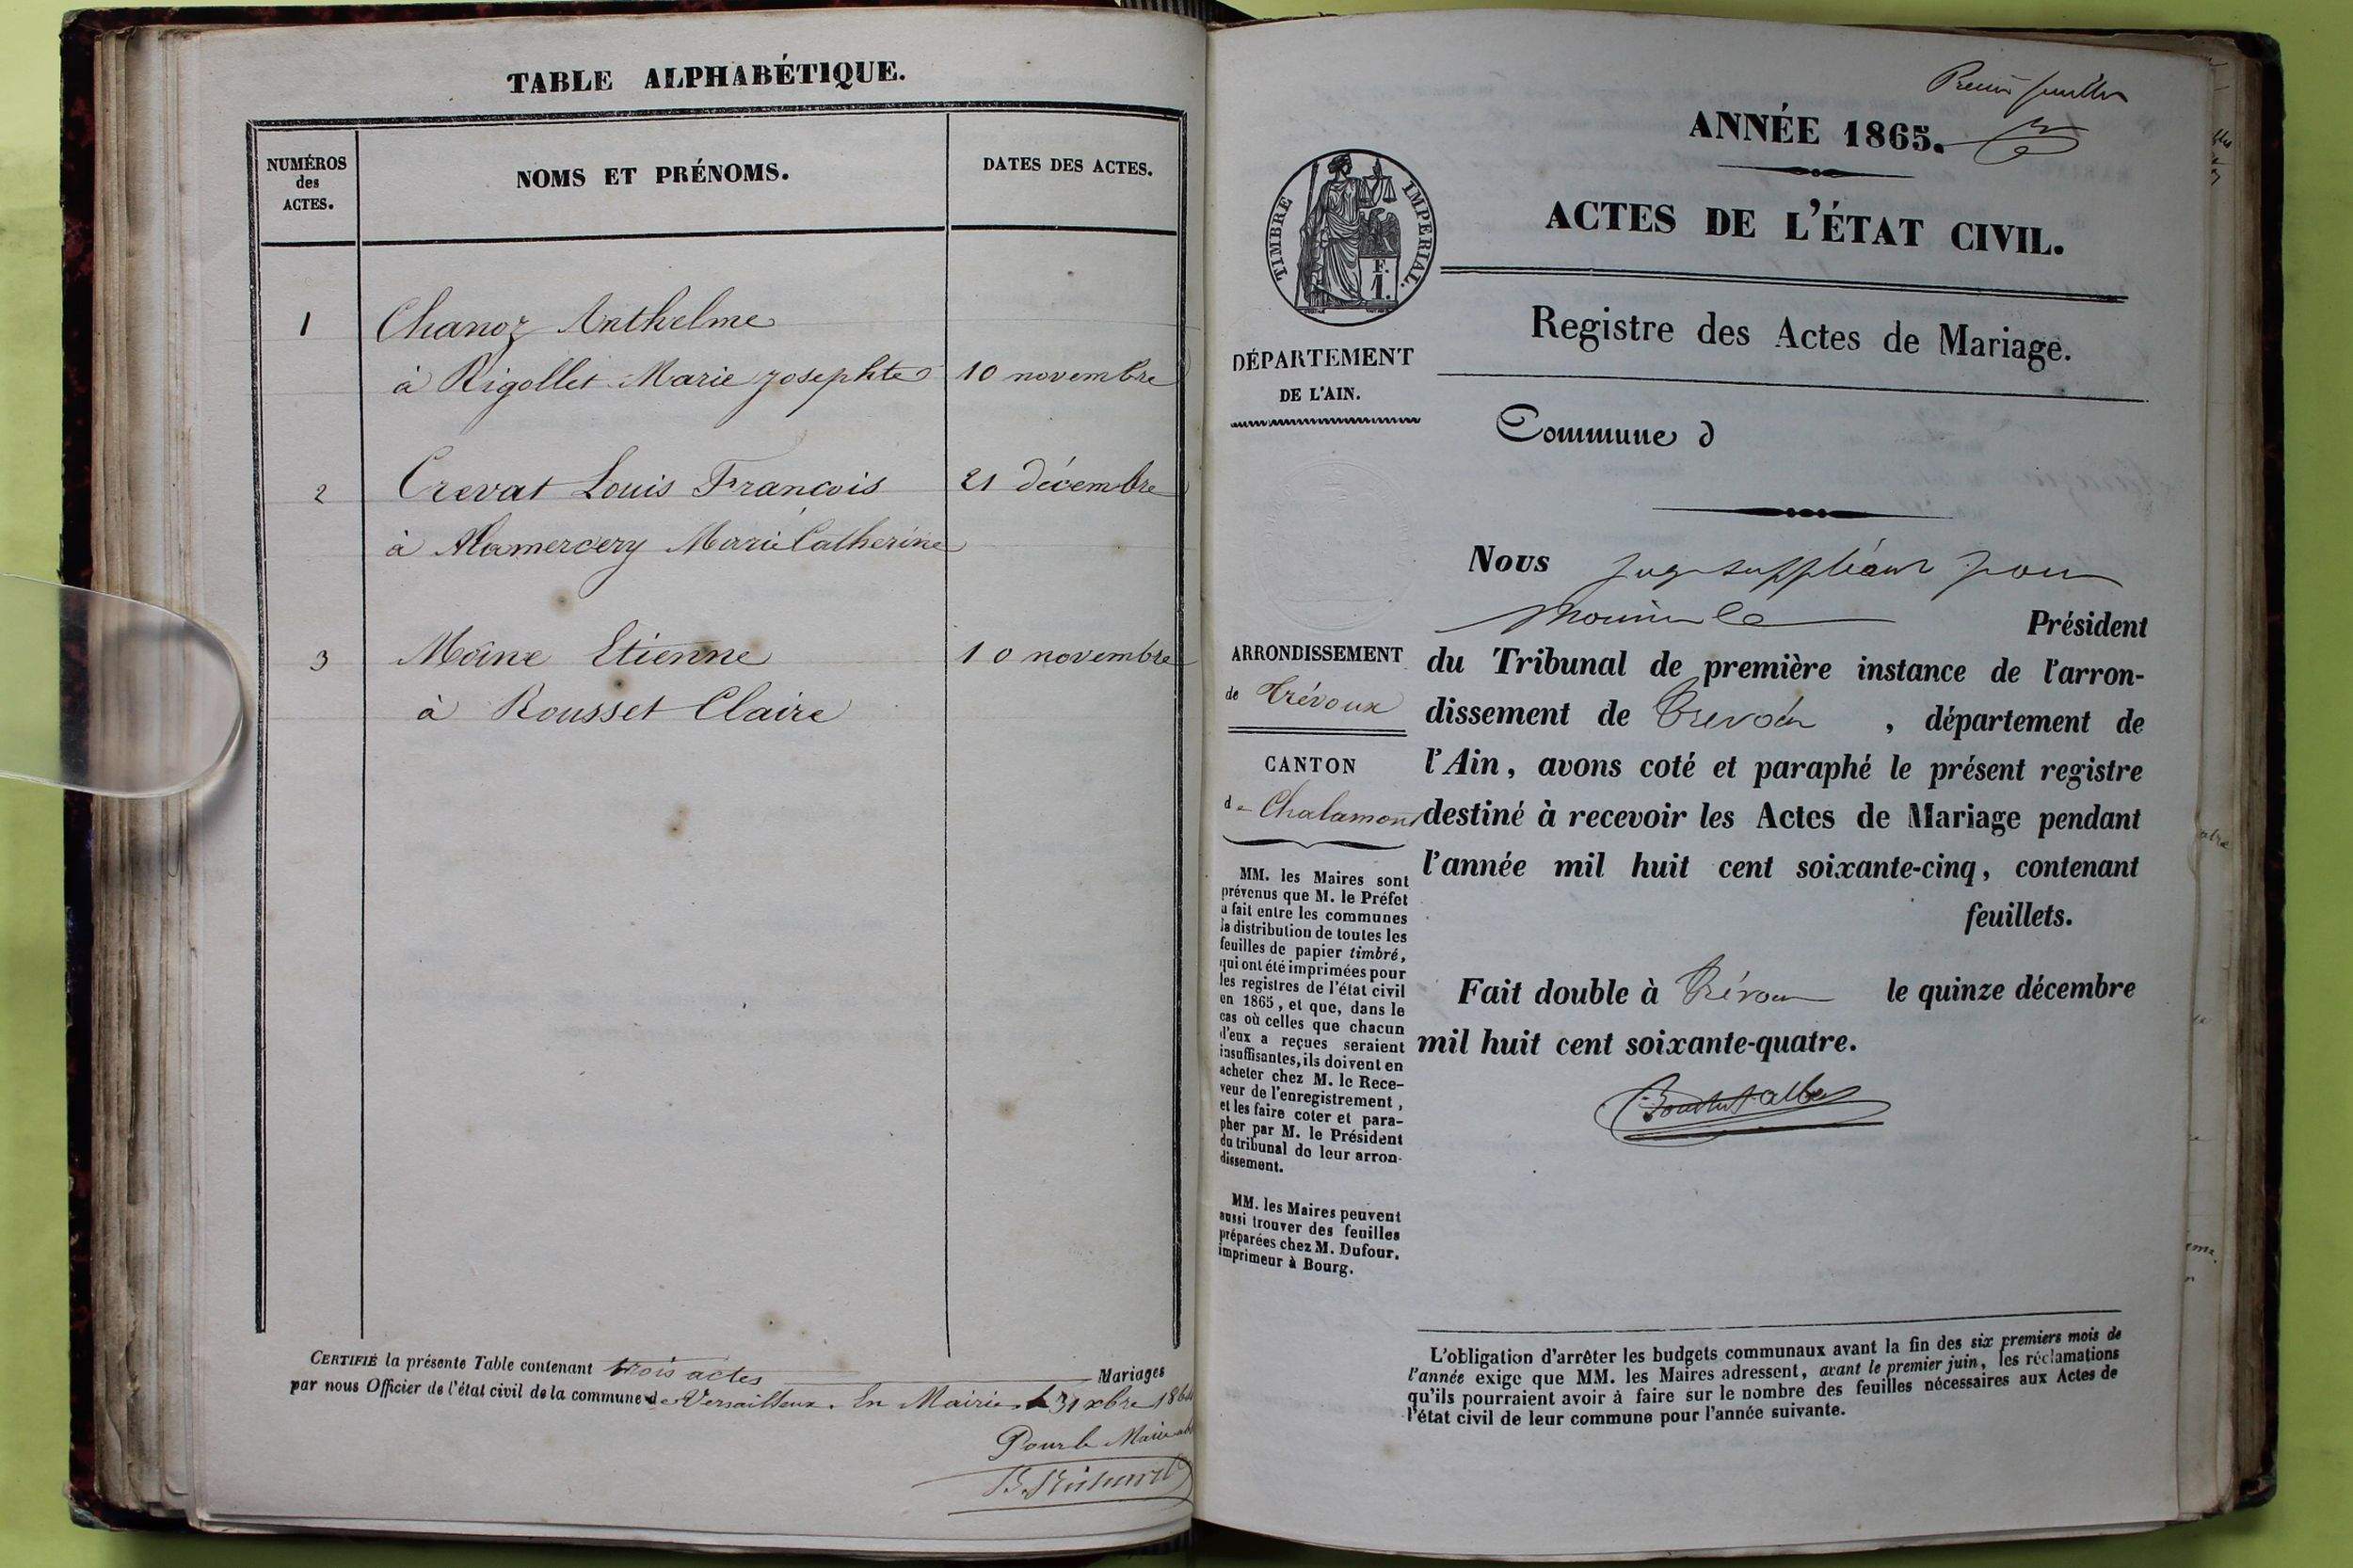 TABLE ALPHABÉTIQUE.
NUMÉROS
des
ACTES.
NOMS ET PRÉNOMS.
DATES DES ACTES.
1 Chanoz Anthelme
à Rigollet Marie Josephte 10 novembre
2 Crevat Louis François 21 décembre
à Alamercery Marie Catherine
3 Moine Etienne 10 novembre
à Rousset Claire
CERTIFIÉ la présente Table contenant trois actes Mariages
par nous Officier de l'état civil de la commune de Versailleux. En Mairie le 31 xbre 1864
Pour le Maire
ANNÉE 1865.
ACTES DE L'ÉTAT CIVIL.
TIMBRE IMPERIAL.
F.
1.
Registre des Actes de Mariage.
DÉPARTEMENT
DE L'AIN.
Commune d
ARRONDISSEMENT
de Trévoux
CANTON
de Chalamont
MM. les Maires sont
prévenus que M. le Préfet
a fait entre les communes
la distribution de toutes les
feuilles de papier timbré,
qui ont été imprimées pour
les registres de l'état civil
en 1865, et que, dans le
cas où celles que chacun
d'eux a reçues seraient
insuffisantes, ils doivent en
acheter chez M. le Rece-
veur de l'enregistrement,
et les faire coter et para-
pher par M. le Président
du tribunal de leur arron-
dissement.
MM. les Maires peuvent
aussi trouver des feuilles
préparées chez M. Dufour,
imprimeur à Bourg.
Nous juge suppléant pour
Président
du Tribunal de première instance de l'arron-
dissement de Trevoux, département de
l'Ain, avons coté et paraphé le présent registre
destiné à recevoir les Actes de Mariage pendant
l'année mil huit cent soixante-cinq, contenant
feuillets.
Fait double à Trévoux le quinze décembre
mil huit cent soixante-quatre.
L'obligation d'arrêter les budgets communaux avant la fin des six premiers mois de
l'année exige que MM. les Maires adressent, avant le premier juin, les réclamations
qu'ils pourraient avoir à faire sur le nombre des feuilles nécessaires aux Actes de
l'état civil de leur commune pour l'année suivante.